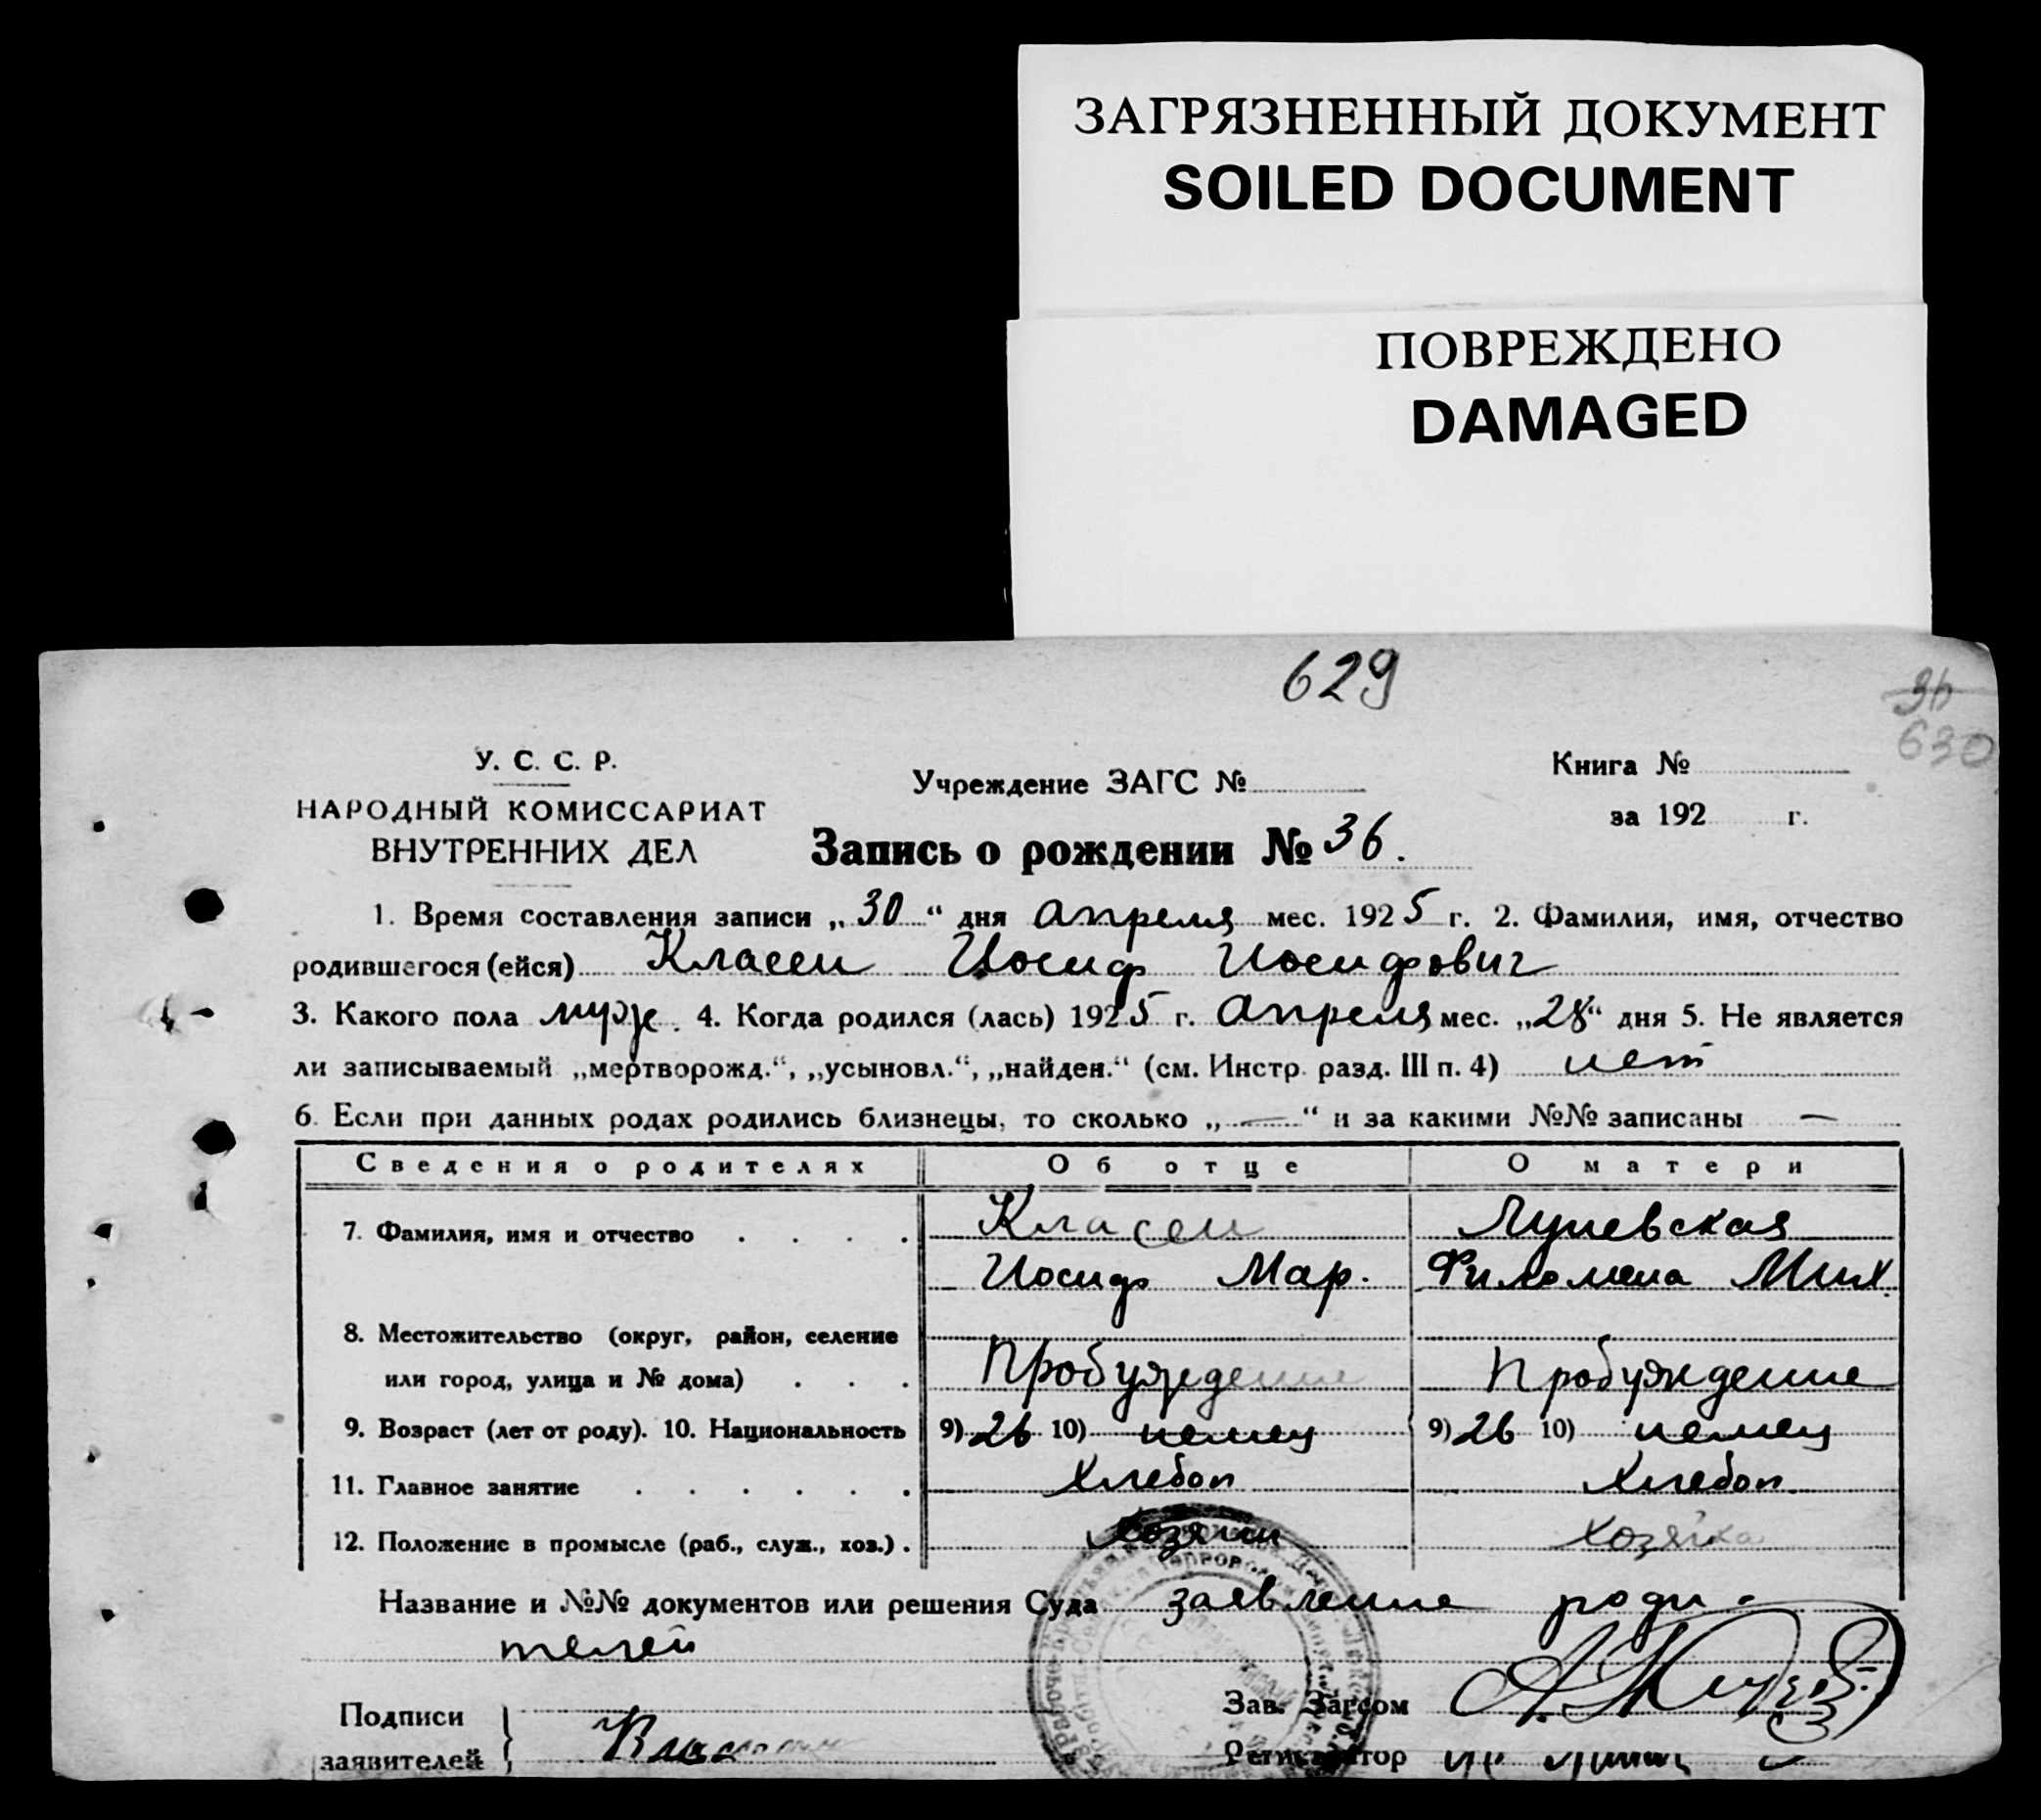 ЗАГРЯЗНЕННЫЙ ДОКУМЕНТ
SOILED DOCUMENT
ПОВРЕЖДЕНО
DAMAGED
629
36
630
У. С. С. Р.
НАРОДНЫЙ КОМИССАРИАТ
ВНУТРЕННИХ ДЕЛ
Учреждение ЗАГС №
Книга №
за 192 г.
Запись о рождении № 36.
1. Время составления записи „30“ дня апреля мес. 1925 г. 2. Фамилия, имя, отчество
родившегося (ейся) Классен Иосиф Иосифович
3. Какого пола муж. 4. Когда родился (лась) 1925 г. апреля мес. „28“ дня 5. Не является
ли записываемый „мертворожд.“, „усыновл.“, „найден.“ (см. Инстр. разд. III п. 4) нет
6. Если при данных родах родились близнецы, то сколько „—“ и за какими №№ записаны —
Сведения о родителях Об отце О матери
7. Фамилия, имя и отчество Класен
Иосиф Мар. Филомена Мих.
8. Местожительство (округ, район, селение
или город, улица и № дома) Пробуждение Пробуждение
9. Возраст (лет от роду). 10. Национальность 9) 26 10) немец 9) 26 10) немец
11. Главное занятие Хлебоп Хлебоп.
12. Положение в промысле (раб., служ., хоз.) Хозяин Хозяйка
Название и №№ документов или решения Суда заявление роди-
телей
Подписи
заявителей
Зав. Загсом
Регистратор